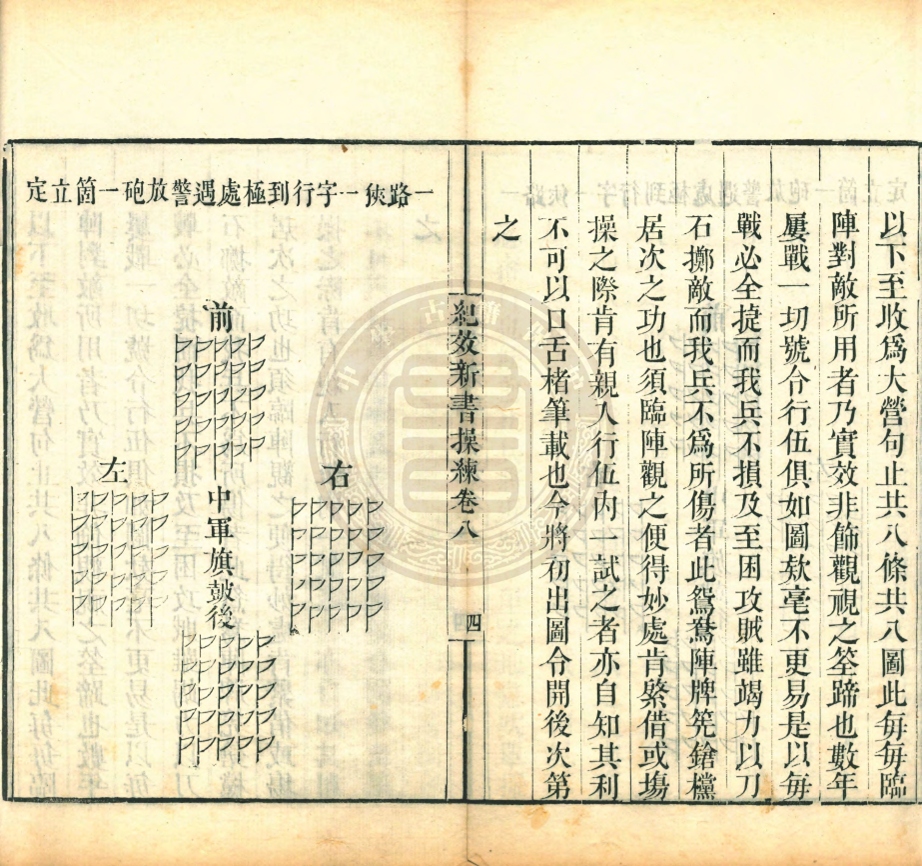 以下至收爲大營句止共八條共八圖此毎毎臨
陣對敵所用者乃實效非飾觀視之筌蹄也數年
屢戰一切號令行伍俱如圖欵毫不更易是以毎
戰必全㨗而我兵不損及至困攻賊雖竭力以刀
石擲敵而我兵不爲所傷者此鴛鴦陣牌筅鎗欓
居次之功也須臨陣觀之便得妙處肯綮借或塲
操之際肯有親入行伍内一試之者亦自知其利
不可以口舌楮筆載也今將初出圖令開後次第
之
紀效新書操練卷八
四
一路狹一字行到極處遇警放砲一箇立定
前
右
左
中軍旗鼓後